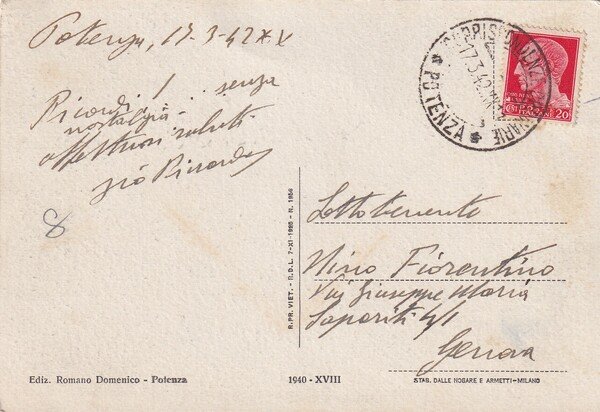 Potenza, 17-3-42 XX
Ricordi! ... senza
nostalgia
affettuosi saluti
Riccardo
8
CORRISPONDENZE ORDINARIE
17.3.42
POTENZA
POSTE ITALIANE
20
Sottotenente
Nino Fiorentino
Via Giuseppe Maria
Saporiti 4/1
Genova
R. PR. VIET. - R.D.L. 7-XI-1925 - N. 1950
Ediz. Romano Domenico - Potenza
1940 - XVIII
STAB. DALLE NOGARE E ARMETTI - MILANO